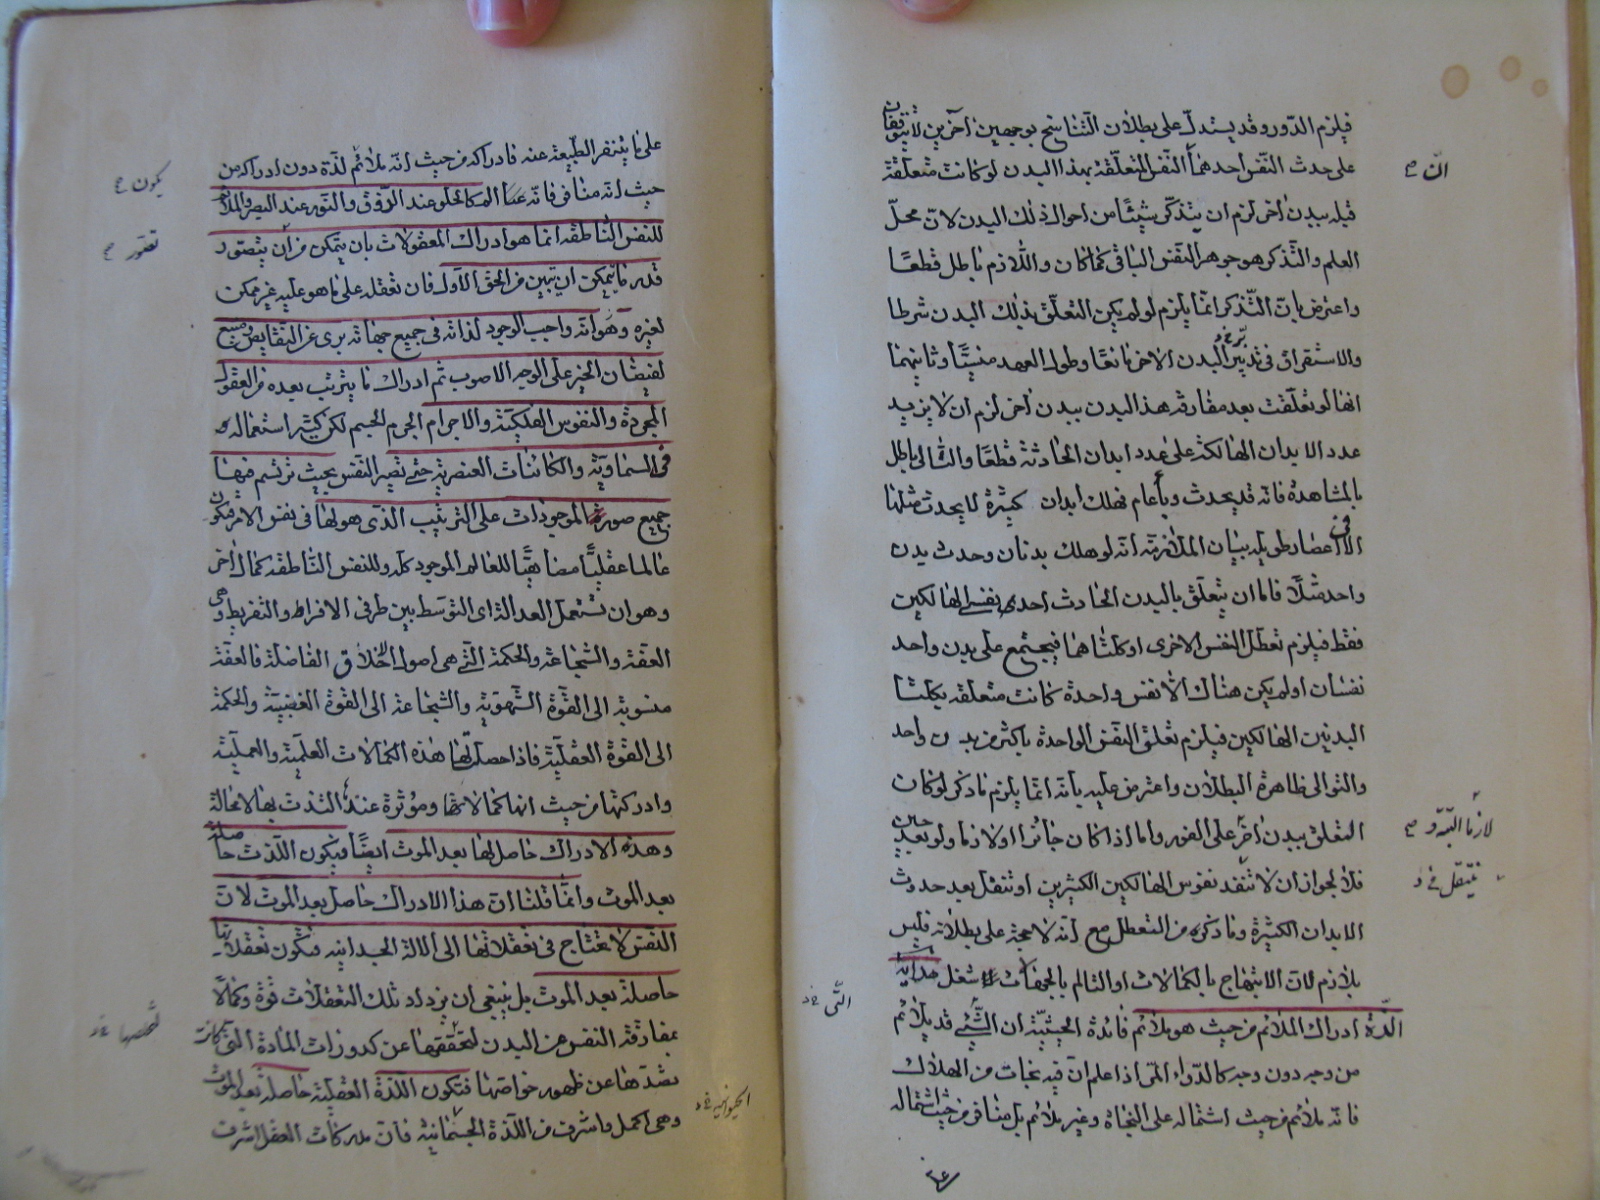 فيلزم الدور وقد يستدل على بطلان التناسخ بوجهين آخرين لا يتوقفان
على حدث النفس احدهما ان النفس المتعلقة بهذا البدن لو كانت متعلقة
قبله ببدن اخر لزم ان يتذكر شيئا من احوال ذلك البدن لان محل
العلم والتذكر هو جوهر النفس الباقى كما كان واللازم باطل قطعا
واعترض بان التذكر انما يلزم لو لم يكن التعلق بذلك البدن شرطا
والاستقراق فى تدبير البدن الاخر مانعا وطول العهد منسيا وثانيهما
انها لو تعلقت بعد مفارقة هذا البدن ببدن اخر لزم ان لا يزيد
عدد الابدان الهالكة على عدد ابدان الحادثة قطعا والتالى باطل
بالمشاهدة فانه قد يحدث وباء عام فهلك ابدان كثيرة لا يحدث مثلها
الا فى اعصار طويلة بيان الملازمة انه لو هلك بدنان وحدث بدن
واحد مثلا فاما ان يتعلق بالبدن الحادث احدى نفسى الهالكين
فقط فيلزم تعطل النفس الاخرى او كلتاهما فيجتمع على بدن واحد
نفسان او لم يكن هناك الا نفس واحدة كانت متعلقة بكلتا
البدنين الهالكين فيلزم تعلق النفس الواحدة باكثر من بدن واحد
والتوالى ظاهرة البطلان واعترض عليه بانه انما يلزم ما ذكر لو كان
التعلق ببدن اخر على الفور واما اذا كان جائزا او لازما ولو بعد حين
فلا لجواز ان لا تنقد نفوس الهالكين الكثيرين او تنقل بعد حدوث
الابدان الكثيرة وما ذكره من التعطل مع انه لا حجة على بطلانه فليس
بلازم لان الابتهاج بالكمالات او التالم بالجهالات شغل هداية
اللذة ادراك الملائم من حيث هو ملائم فائدة الحيثية ان الشئ قد يلائم
من وجه دون وجه كالدواء المر اذا علم ان فيه نجات من الهلاك
فانه ملائم من حيث اشتماله على النجاة وغير ملائم بل مناف من حيث اشتماله
على ما يتنفر الطبيعة عنه فادراكه من حيث انه ملائم لذة دون ادراكه من
حيث انه مناف فانه كالحلو عند الذوق والنور عند البصر والملائم
للنفس الناطقة انما هو ادراك المعقولات بان يتمكن من ان يتصور
قدر ما يمكن ان يتبين من الحق الاول فان تعقله على ما هو عليه غير ممكن
لغيره وهو انه واجب الوجود لذاته فى جميع جهاته برى عن النقايص منبع
لفيضان الخير على الوجه الاصوب ثم ادراك ما يترتب بعده من العقول
المجردة والنفوس الفلكية والاجرام الجرم الجسم لكن كثير استعماله
فى السماوية والكائنات العنصرية حتى تصير النفس بحيث ترتسم فيها
جميع صور الموجودات على الترتيب الذى هو لها فى نفس الامر فتكون
عالما عقليا مضاهيا للعالم الموجود كله وللنفس الناطقة كمال اخر
وهو ان تستعمل العدالة اى التوسط بين طرفى الافراط والتفريط وهى
العفة والشجاعة والحكمة التى هى اصول الاخلاق الفاضلة فالعفة
منسوبة الى القوة الشهوية والشجاعة الى القوة الغضبية والحكمة
الى القوة العقلية فاذا حصل لها هذه الكمالات العلمية والعملية
وادركتها من حيث انها كمالاتها ومؤثرة عنده التذت بها لا محالة
وهذه الادراك حاصل لها بعد الموت ايضا فيكون اللذت حاصلة
بعد الموت وانما قلنا ان هذا الادراك حاصل بعد الموت لان
النفس لا تحتاج فى تعقلاتها الى الالة الجسدانية فتكون تعقلاتها
حاصلة بعد الموت بل ينبغى ان يزداد تلك التعقلات قوة وكمالا
بمفارقة النفس من البدن لتحققها عن كدورات المادة التى كانت
تصدها عن ظهور خواصها فتكون اللذة العقلية حاصلة بعد الموت
وهى اكمل واشرف من اللذة الجسمانية فان مدركات العقل اشرف
ان صح
لازما البتة و صح
ينتقل خ د
التى خ د
يكون صح
تصور صح
الحيوانية خ د